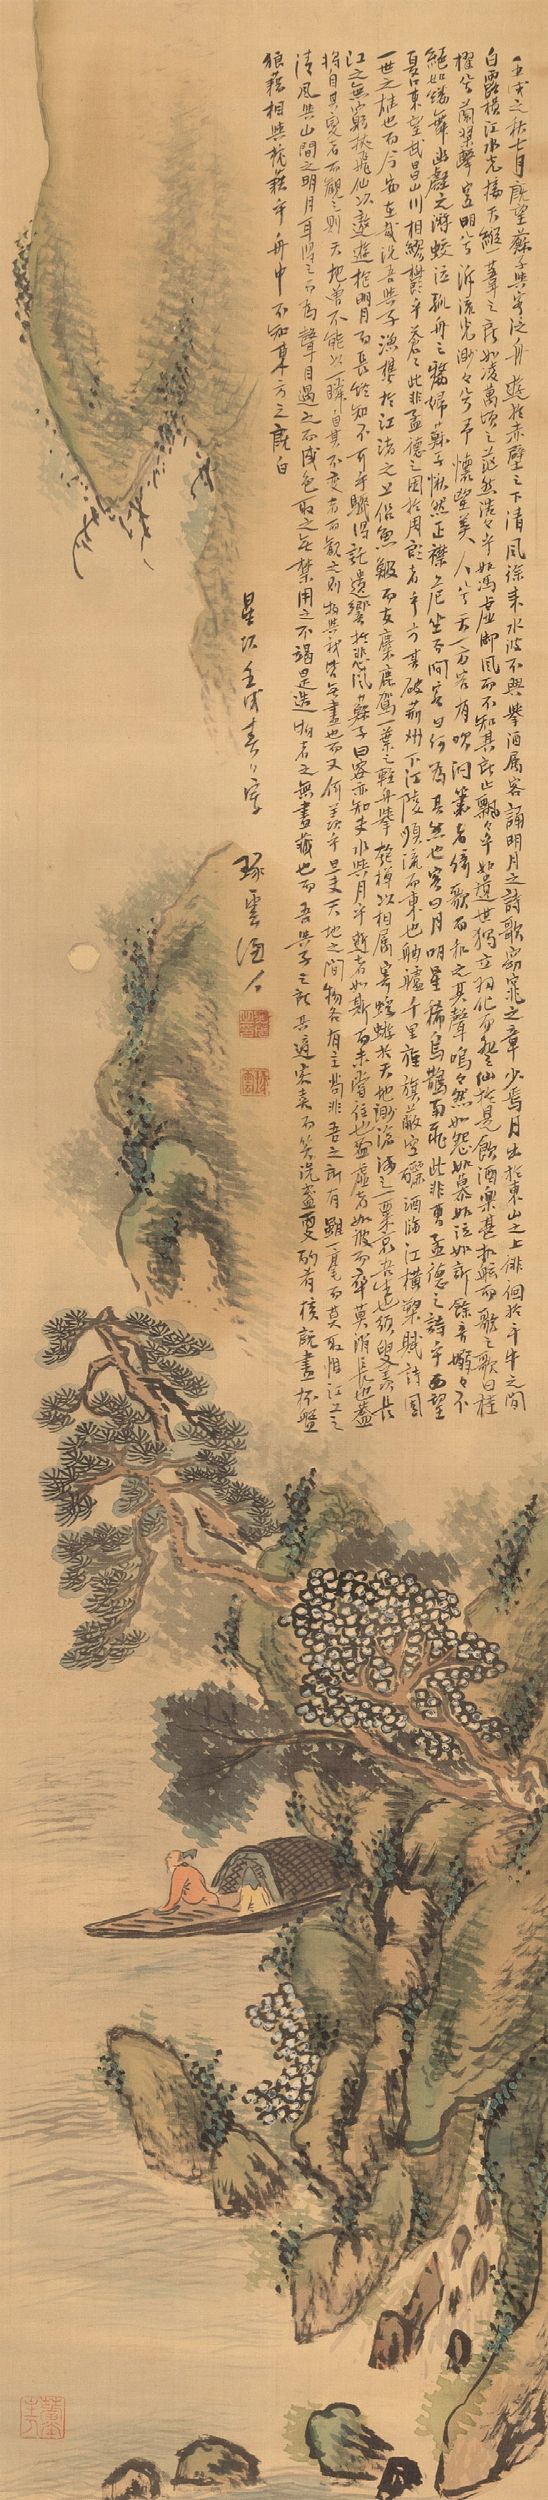 壬戌之秋七月既望蘇子與客泛舟遊於赤壁之下清風徐来水波不興擧酒属客誦明月之詩歌窈窕之章少焉月出於東山之上徘徊於斗牛之間
白露横江水光接天縦一葦之所如凌萬頃之茫然浩々乎如馮虚御風而不知其所止飄々乎如遺世獨立羽化而登仙於是飲酒樂甚扣舷而歌之歌曰桂
櫂兮蘭槳擊空明兮泝流光渺々兮予懐望美人兮天一方客有吹洞簫者倚歌而和之其聲嗚々然如怨如慕如泣如訴餘音嫋々不
絶如縷舞幽壑之潜蛟泣孤舟之嫠婦蘇子愀然正襟危坐而問客曰何為其然也客曰月明星稀烏鵲南飛此非曹孟德之詩乎西望
夏口東望武昌山川相繆欝乎蒼々此非孟德之困於周郎者乎方其破荊州下江陵順流而東也舳艫千里旌旗蔽空釃酒臨江横槊賦詩固
一世之雄也而今安在哉况吾與子漁樵於江渚之上侶魚鰕而友麋鹿駕一葉之輕舟擧匏樽以相属寄蜉蝣於天地渺滄海之一粟哀吾生之須臾羨長
江之無窮挟飛仙以遨遊抱明月而長終知不可乎驟得託遺響於悲風蘇子曰客亦知夫水與月乎逝者如斯而未嘗往也盈虚者如彼而卒莫消長也蓋
将自其変者而観之則天地曾不能以一瞬自其不変者而観之則物與我皆無盡也而又何羨乎且夫天地之間物各有主苟非吾之所有雖一毫而莫取惟江上之
清風與山間之明月耳得之而為聲目遇之而成色取之無禁用之不竭是造物者之無盡蔵也而吾與子之所共適客喜而笑洗盞更酌肴核既盡杯盤
狼藉相與枕藉乎舟中不知東方之既白
星次壬戌春日写 琢雲